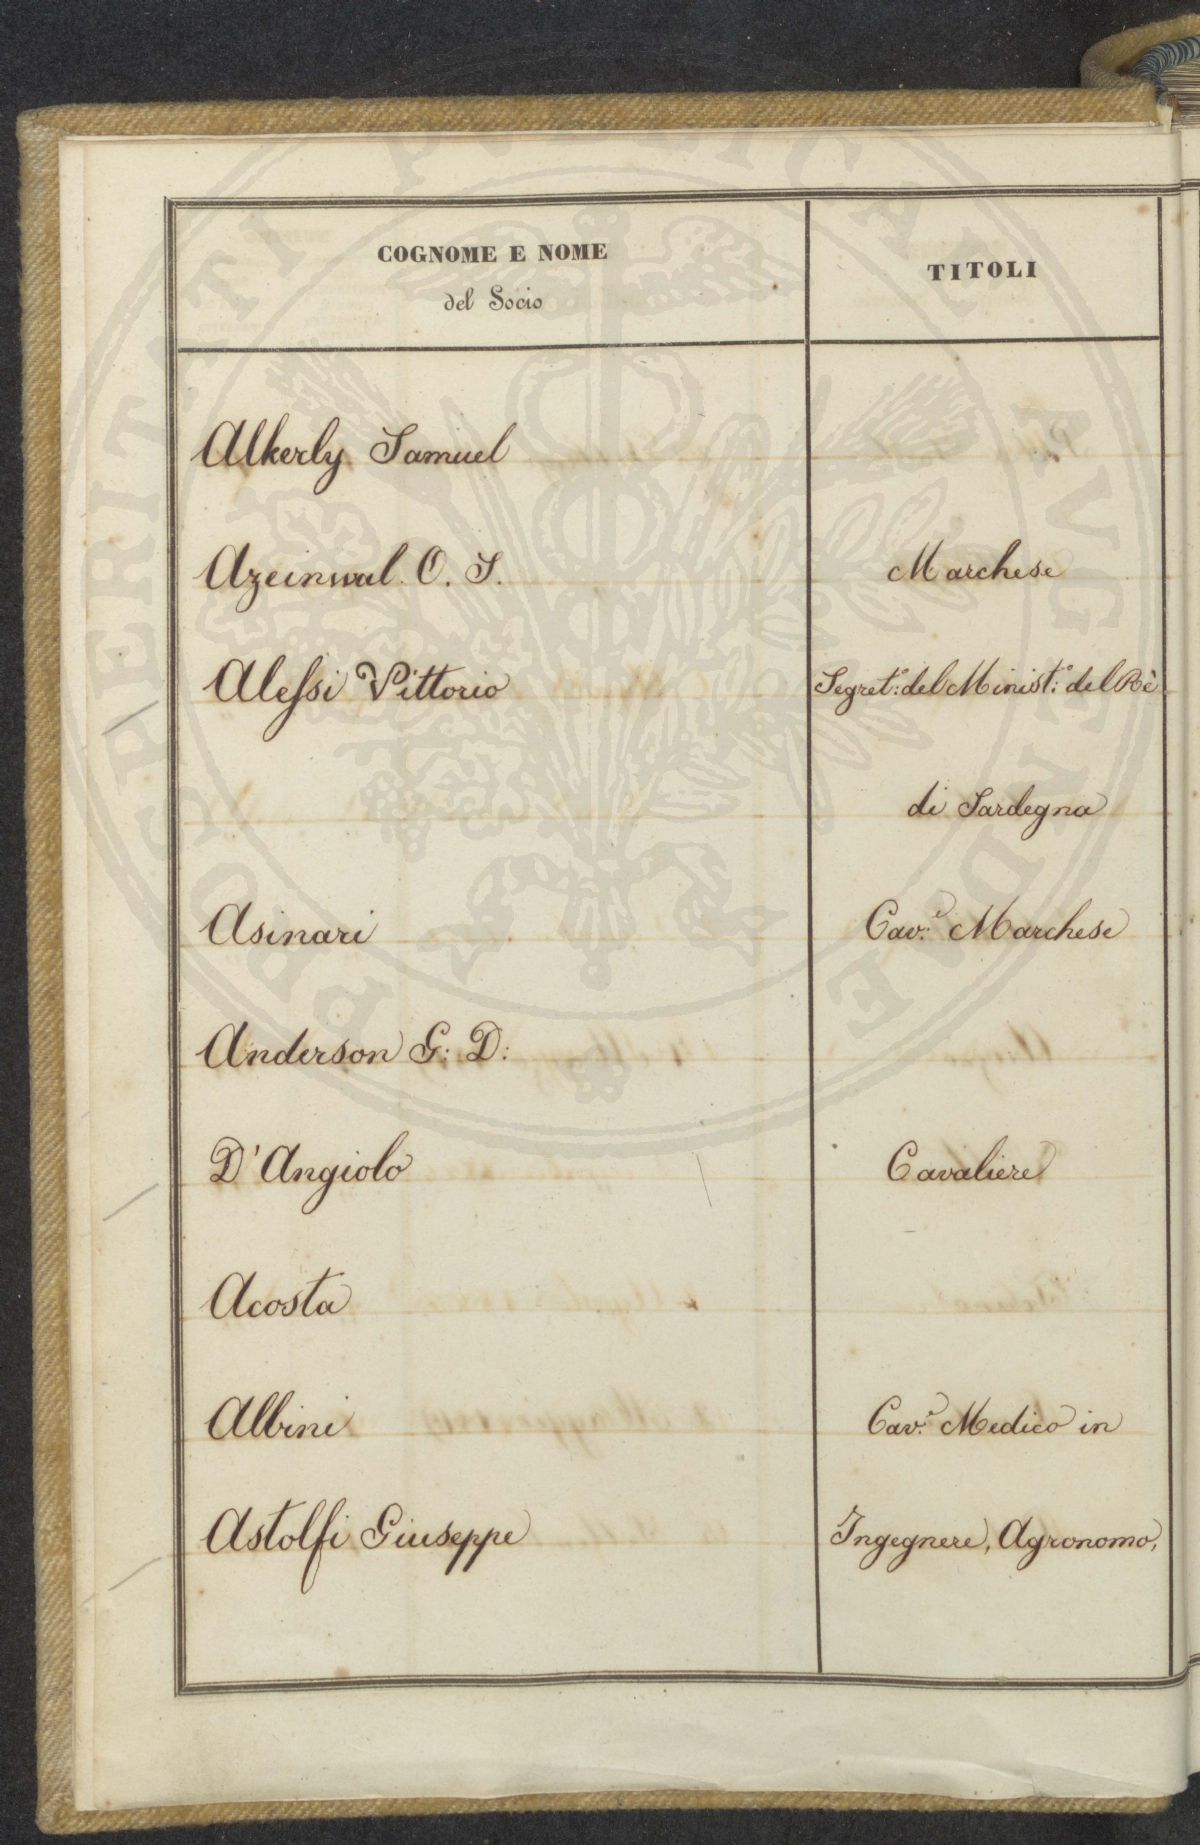 COGNOME E NOME
del Socio
TITOLI
Alkerly Samuel
Azeinwal O. S.
Marchese
Alessi Vittorio
Segret.o: del Minist.o: del Rè
di Sardegna
Asinari
Cav.e: Marchese
Anderson G: D:
D'Angiolo
Cavaliere
Acosta
Albini
Cav.e: Medico in
Astolfi Giuseppe
Ingegnere, Agronomo,
PROSPERITATI PUBLICAE AUGENDAE